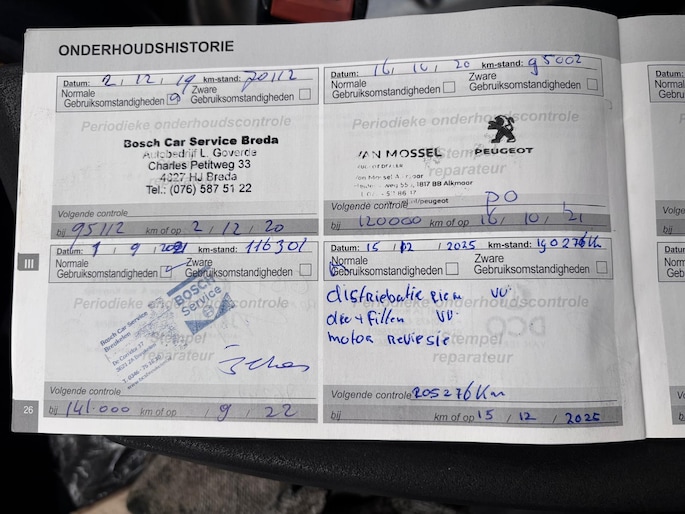 ONDERHOUDSHISTORIE
Datum: 2, 12, 19 km-stand: 70112
Normale
Gebruiksomstandigheden
Zware
Gebruiksomstandigheden
Periodieke onderhoudscontrole
Bosch Car Service Breda
Autobedrijf L. Goverde
Charles Petitweg 33
4827 HJ Breda
Tel.: (076) 587 51 22
Volgende controle
bij 95112 km of op 2 / 12 / 20
Datum: 16, 10, 20 km-stand: 95002
Normale
Gebruiksomstandigheden
Zware
Gebruiksomstandigheden
Periodieke onderhoudscontrole
VAN MOSSEL
PEUGEOT
Stempel
reparateur
1817 BB Alkmaar
Volgende controle
bij 120000 km of op 16 / 10 / 21
III
Datum: 1, 9, 2021 km-stand: 116301
Normale
Gebruiksomstandigheden
Zware
Gebruiksomstandigheden
Periodieke onderhoudscontrole
BOSCH
Service
Bosch Car Service
Breukelen
Stempel
reparateur
Volgende controle
bij 141.000 km of op / 9 / 22
Datum: 15 / 12 / 2025 km-stand: 190276Km
Normale
Gebruiksomstandigheden
Zware
Gebruiksomstandigheden
Periodieke onderhoudscontrole
distriebatie riem VV
olie + filter VV
motor revisie
Stempel
reparateur
Volgende controle 205276Km
bij km of op 15 / 12 / 2025
26